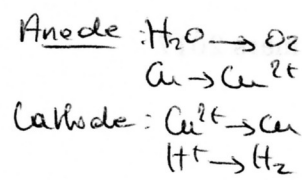 Anode : H₂O → O₂
Cu → Cu²⁺
Cathode : Cu²⁺ → Cu
H⁺ → H₂